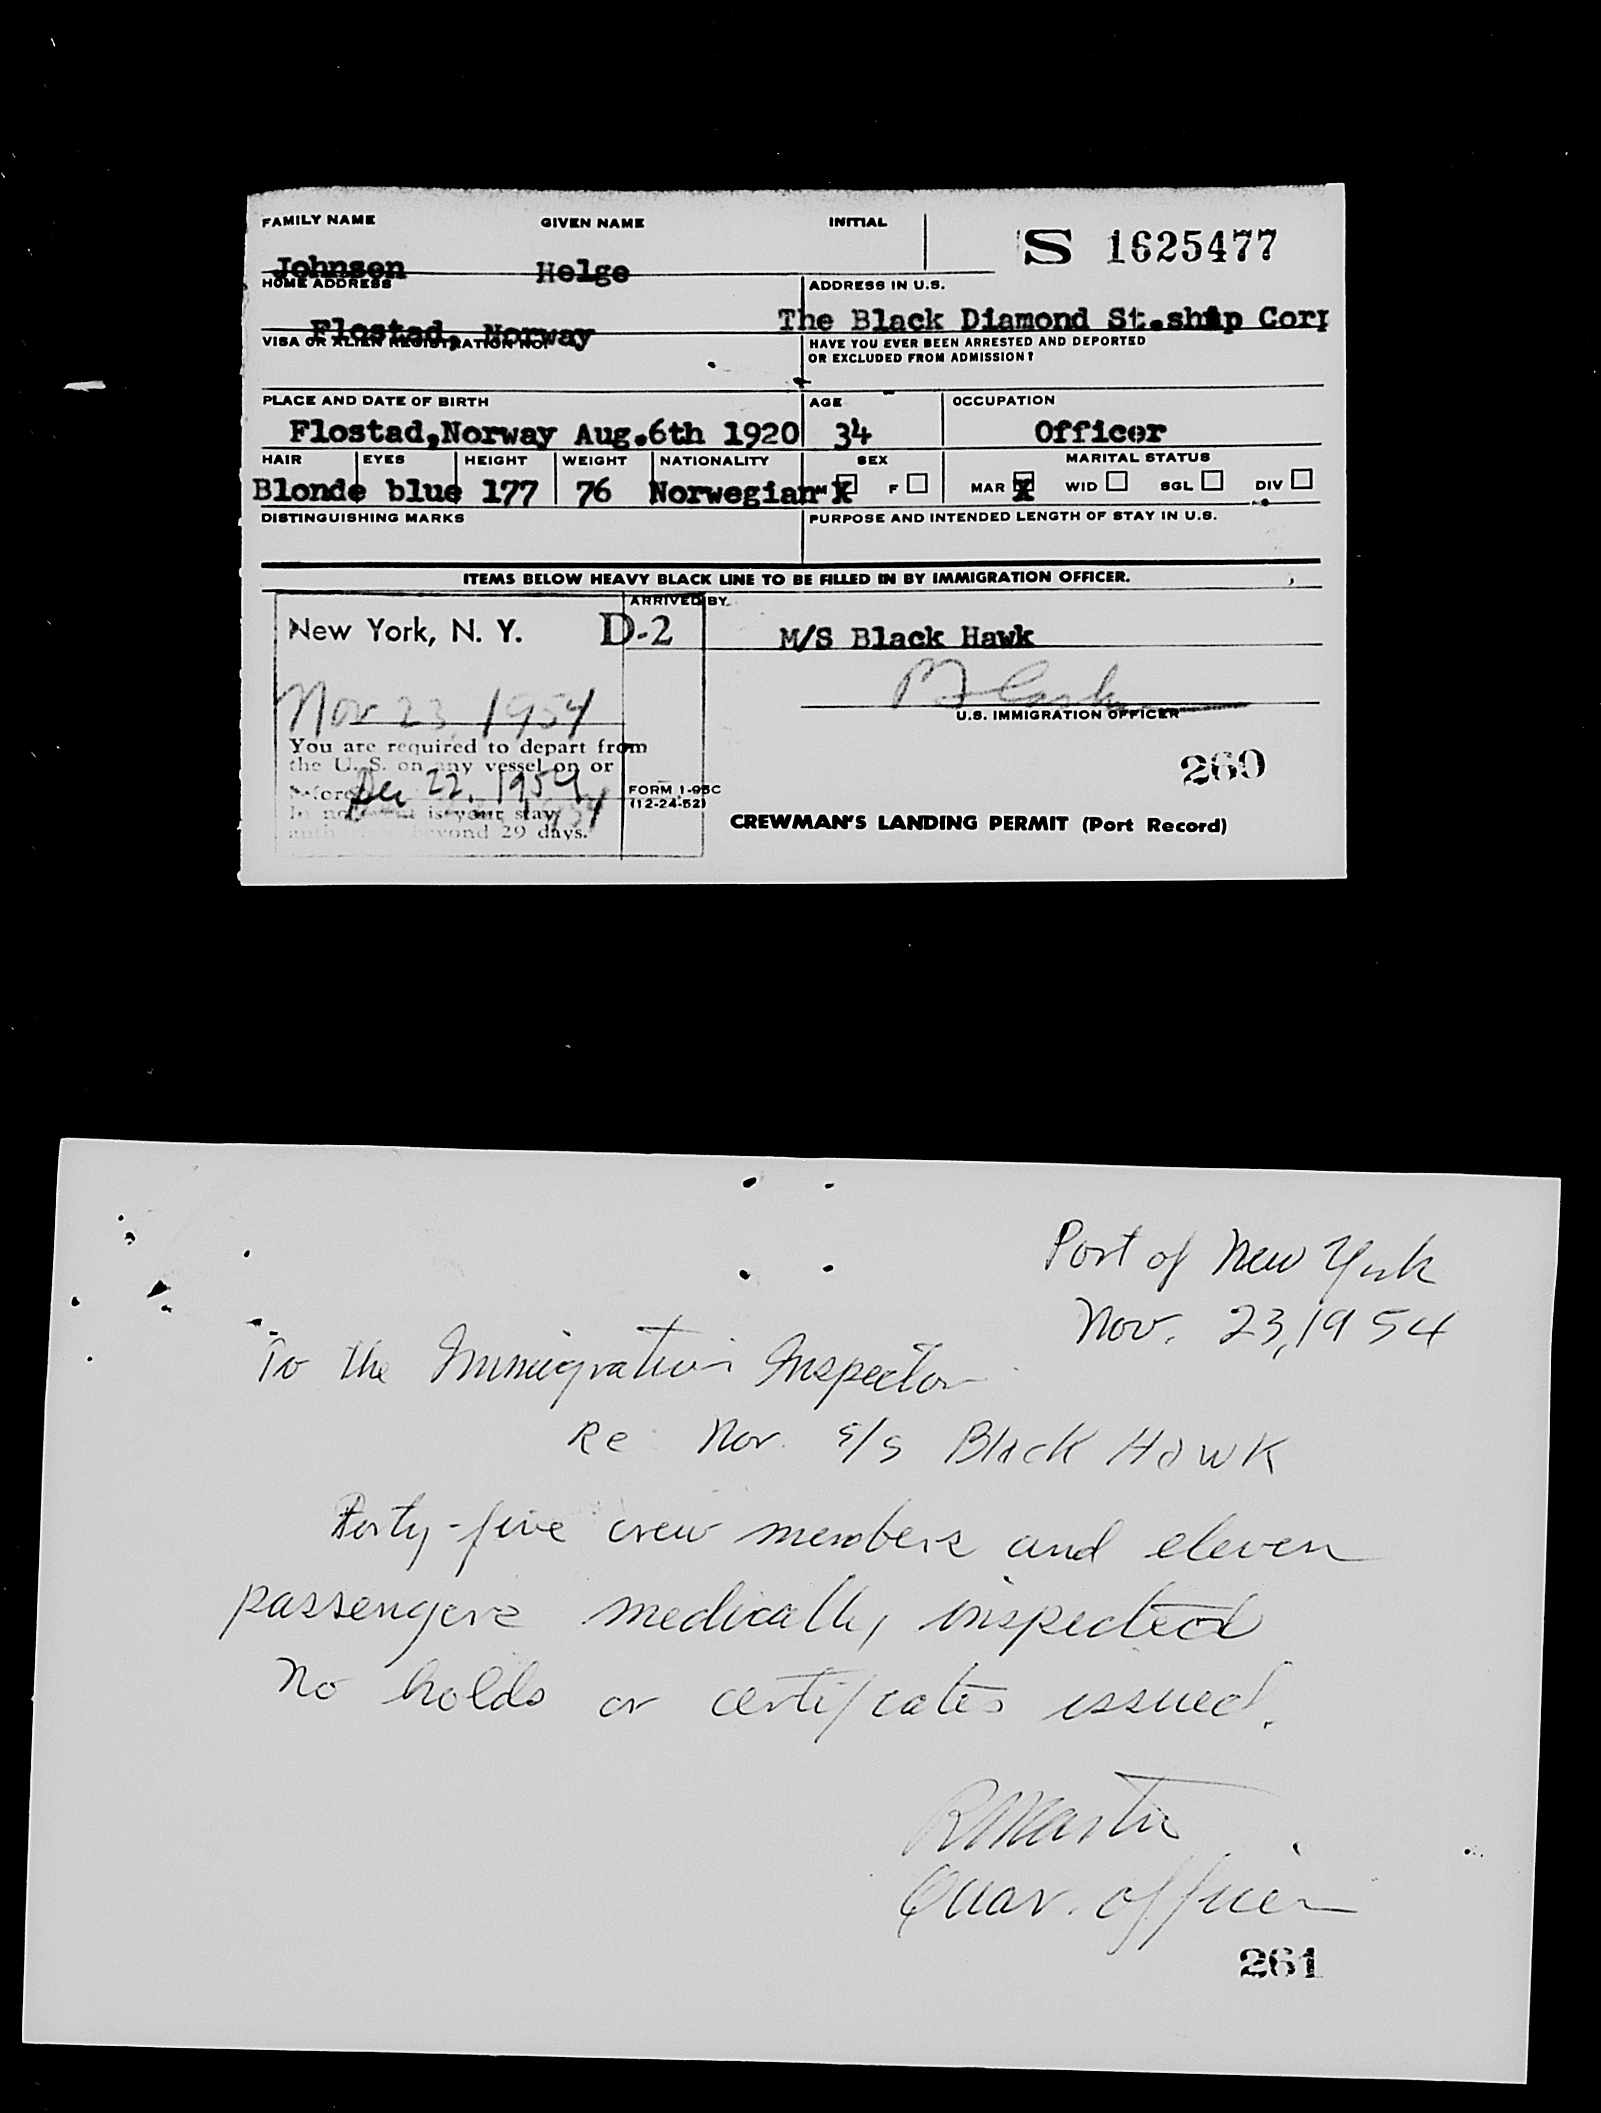 FAMILY NAME GIVEN NAME INITIAL
S 1625477
Johnsen Helge
HOME ADDRESS ADDRESS IN U.S.
Flostad, Norway The Black Diamond St.ship Corp
VISA OR ALIEN REGISTRATION NO. HAVE YOU EVER BEEN ARRESTED AND DEPORTED
OR EXCLUDED FROM ADMISSION?
PLACE AND DATE OF BIRTH AGE OCCUPATION
Flostad,Norway Aug.6th 1920 34 Officer
HAIR EYES HEIGHT WEIGHT NATIONALITY SEX MARITAL STATUS
Blonde blue 177 76 Norwegian M X F MAR X WID SGL DIV
DISTINGUISHING MARKS PURPOSE AND INTENDED LENGTH OF STAY IN U.S.
ITEMS BELOW HEAVY BLACK LINE TO BE FILLED IN BY IMMIGRATION OFFICER.
ARRIVED BY
New York, N. Y. D-2 M/S Black Hawk
Nov 23, 1954
U.S. IMMIGRATION OFFICER
You are required to depart from
the U. S. on any vessel on or
before Dec 22, 1954
In no is your stay
beyond 29 days.
FORM I-95C
(12-24-52)
260
CREWMAN'S LANDING PERMIT (Port Record)
Port of New York
Nov. 23, 1954
To the Immigration Inspector
Re: Nor. S/S Black Hawk
Forty-five crew members and eleven
passengers medically inspected
No holds or certificates issued.
R Martin
Quar. officer
261